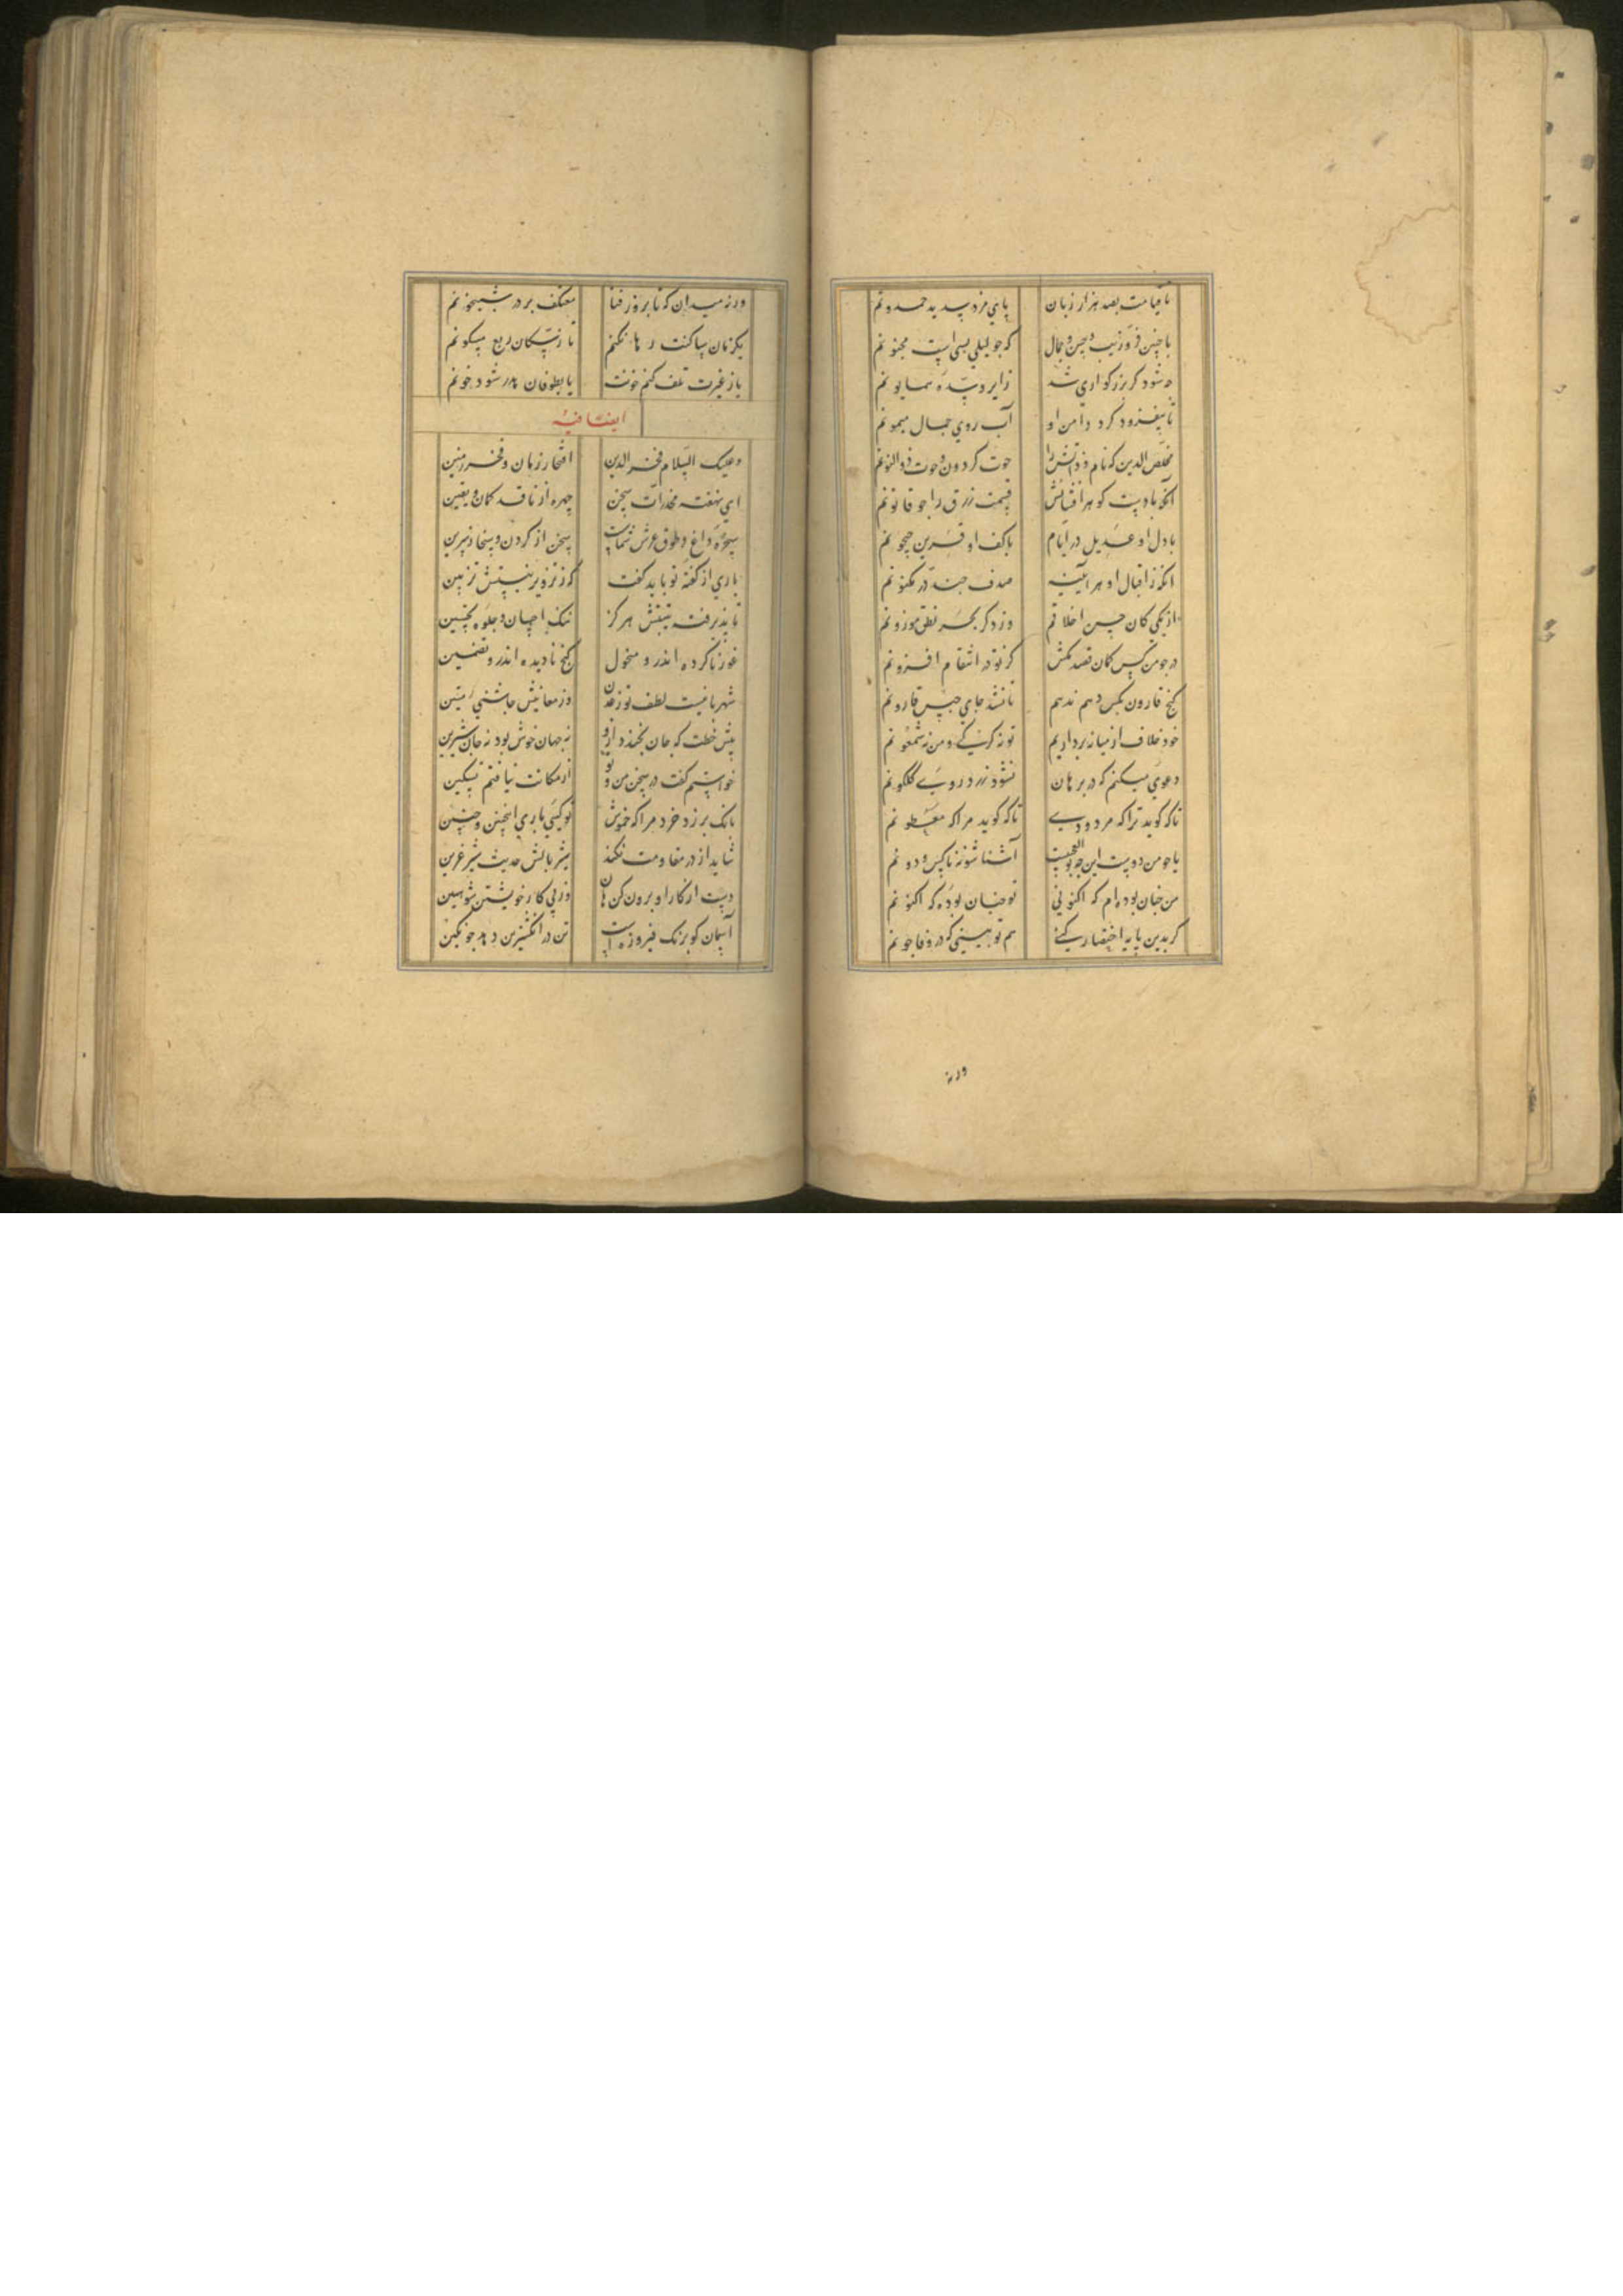 تا قیامت بصد هزار زبان پای مزد پدید حمدونم
با چنین فر و زیب و حسن و جمال که چو لیلی بسی است مجنونم
چه شود کر بزرکواری شد زایر و بنده همایونم
تا بیفزود کرد دامن او آب روی جمال میمونم
مخلص الدین که نام و ذاتش را حوت کردون و حوت ذوالنونم
آنکه با دست کوهر افشانش قیمت زرق را چو قانونم
با دل او عدیل در ایام با کف او قرین جیحونم
انکه ز اقبال او هر آینه صدف چند در مکنونم
از یکی کان حسن اخلاقم وز دکر بحر نطق موزونم
در چو من کس کمان قصد مکش کر نه در انتقام افزونم
کنج قارون بکس دهم ندهم تا نشد جای حبس قارونم
خود خلاف از میانه برداریم تو نه کرکی و من نه شمعونم
دعوی میکنم که در برهان نشود زرد روی کلکونم
تا که کوید ترا که مردودی تا که کوید مرا که مغبونم
با چو من دوست این چه بوالعجبیست آشنا شو نه ناکس و دونم
من چنان بوده ام که اکنونی تو چنان بوده که اکنونم
کر بدین پایه اختصار کنی هم تو بینی که در وفا چونم
ورنه
ورنه میدان که تا بروز فنا معتکف بر در شبیخونم
یکزمان ساکنت رها نکنم تا
یا ز غیرت تلف کنم خونت یا بطوفان بدر شود خونم
ایضا فیه
وعلیک السلام فخر الدین افتخار زمان و فخر زمین
ای نهفته مخدرات سخن چهره از ناقد کمان و یقین
سخره داغ و طوق عرش شماست سخن از کردن و
باری از کفته تو باید کفت کز تزویر نیستش تزیین
نا پذیرفته هرکز ننک احسان و جلوه تحسین
غور ناکرده اندر و منحول کنج نادیده اندرو تضمین
شهر یافیست لطف تو زعدن وز معانیش چاشنی متین
پیش خطت که جان بخندد ازو نه جهان خوش بود نه جان شیرین
خواستم کفت در سخن من و تو از مکانت نیافتم تسکین
بانک بر زد خرد مرا که خموش تو کیی باری اینچنین و چنین
شاید از در مقاومت نکند شیر بالش حدیث شیر عرین
دست از کار او برون کن هان وز پی کار خویشتن بنشین
آسمان کو برنک فیروزه است تن در انکشترین دهد چو نکین